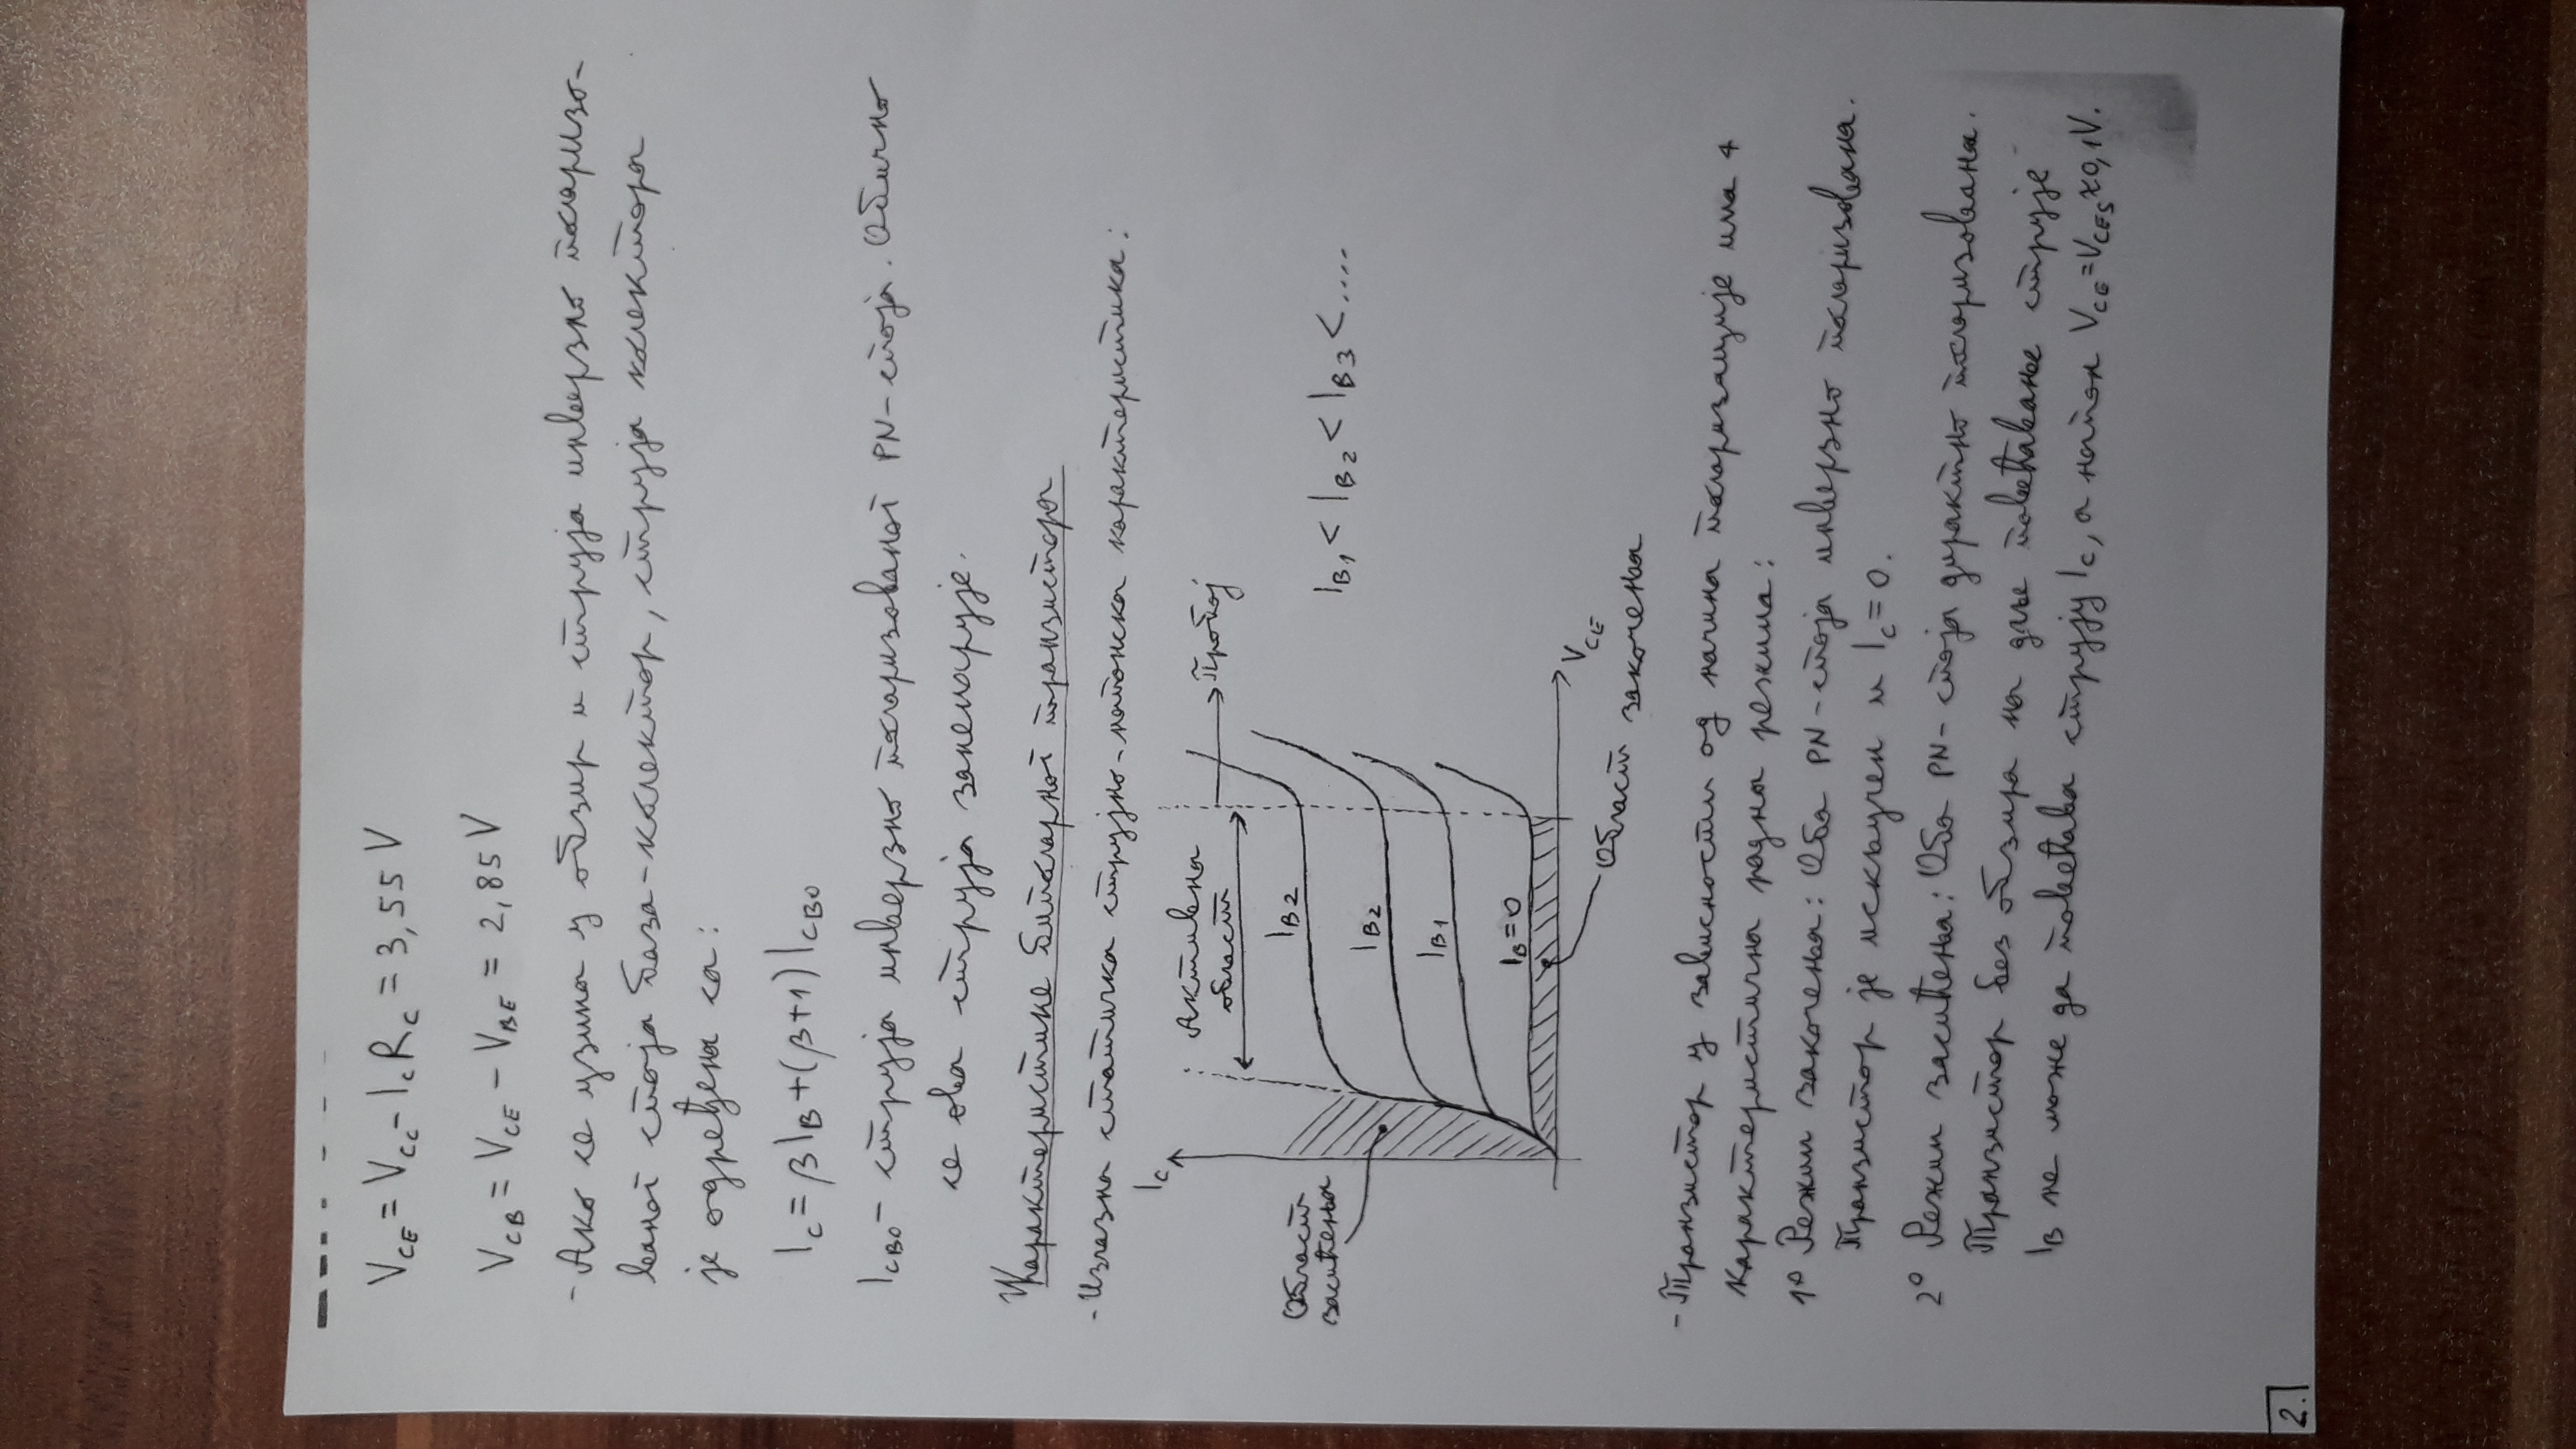 V_CE = V_CC - I_C R_C = 3,55 V
V_CB = V_CE - V_BE = 2,85 V
- Ако се узима у обзир и струја инверзно поларизо-
ваног споја база-колектор, струја колектора
је одређена са:
I_C = βI_B + (β+1) I_CB0
I_CB0 - струја инверзно поларизованог PN-споја. Обично
се ова струја занемарује.
Карактеристике биполарног транзистора
- Излазна статичка струјно-напонска карактеристика:
I_C
Активна
област
Пробој
I_B2
Област
засићења
I_B1 < I_B2 < I_B3 < ....
I_B2
I_B1
I_B = 0
V_CE
Област закочења
- Транзистор у зависности од начина поларизације има 4
карактеристична радна режима:
1° Режим закочења: Оба PN-споја инверзно поларизована.
Транзистор је искључен и I_C = 0.
2° Режим засићења: Оба PN-споја дирактно поларизована.
Транзистор без обзира на дље повећавање струје
I_B не може да повећава струју I_C, а напон V_CE = V_CES ≈ 0,1V.
2.